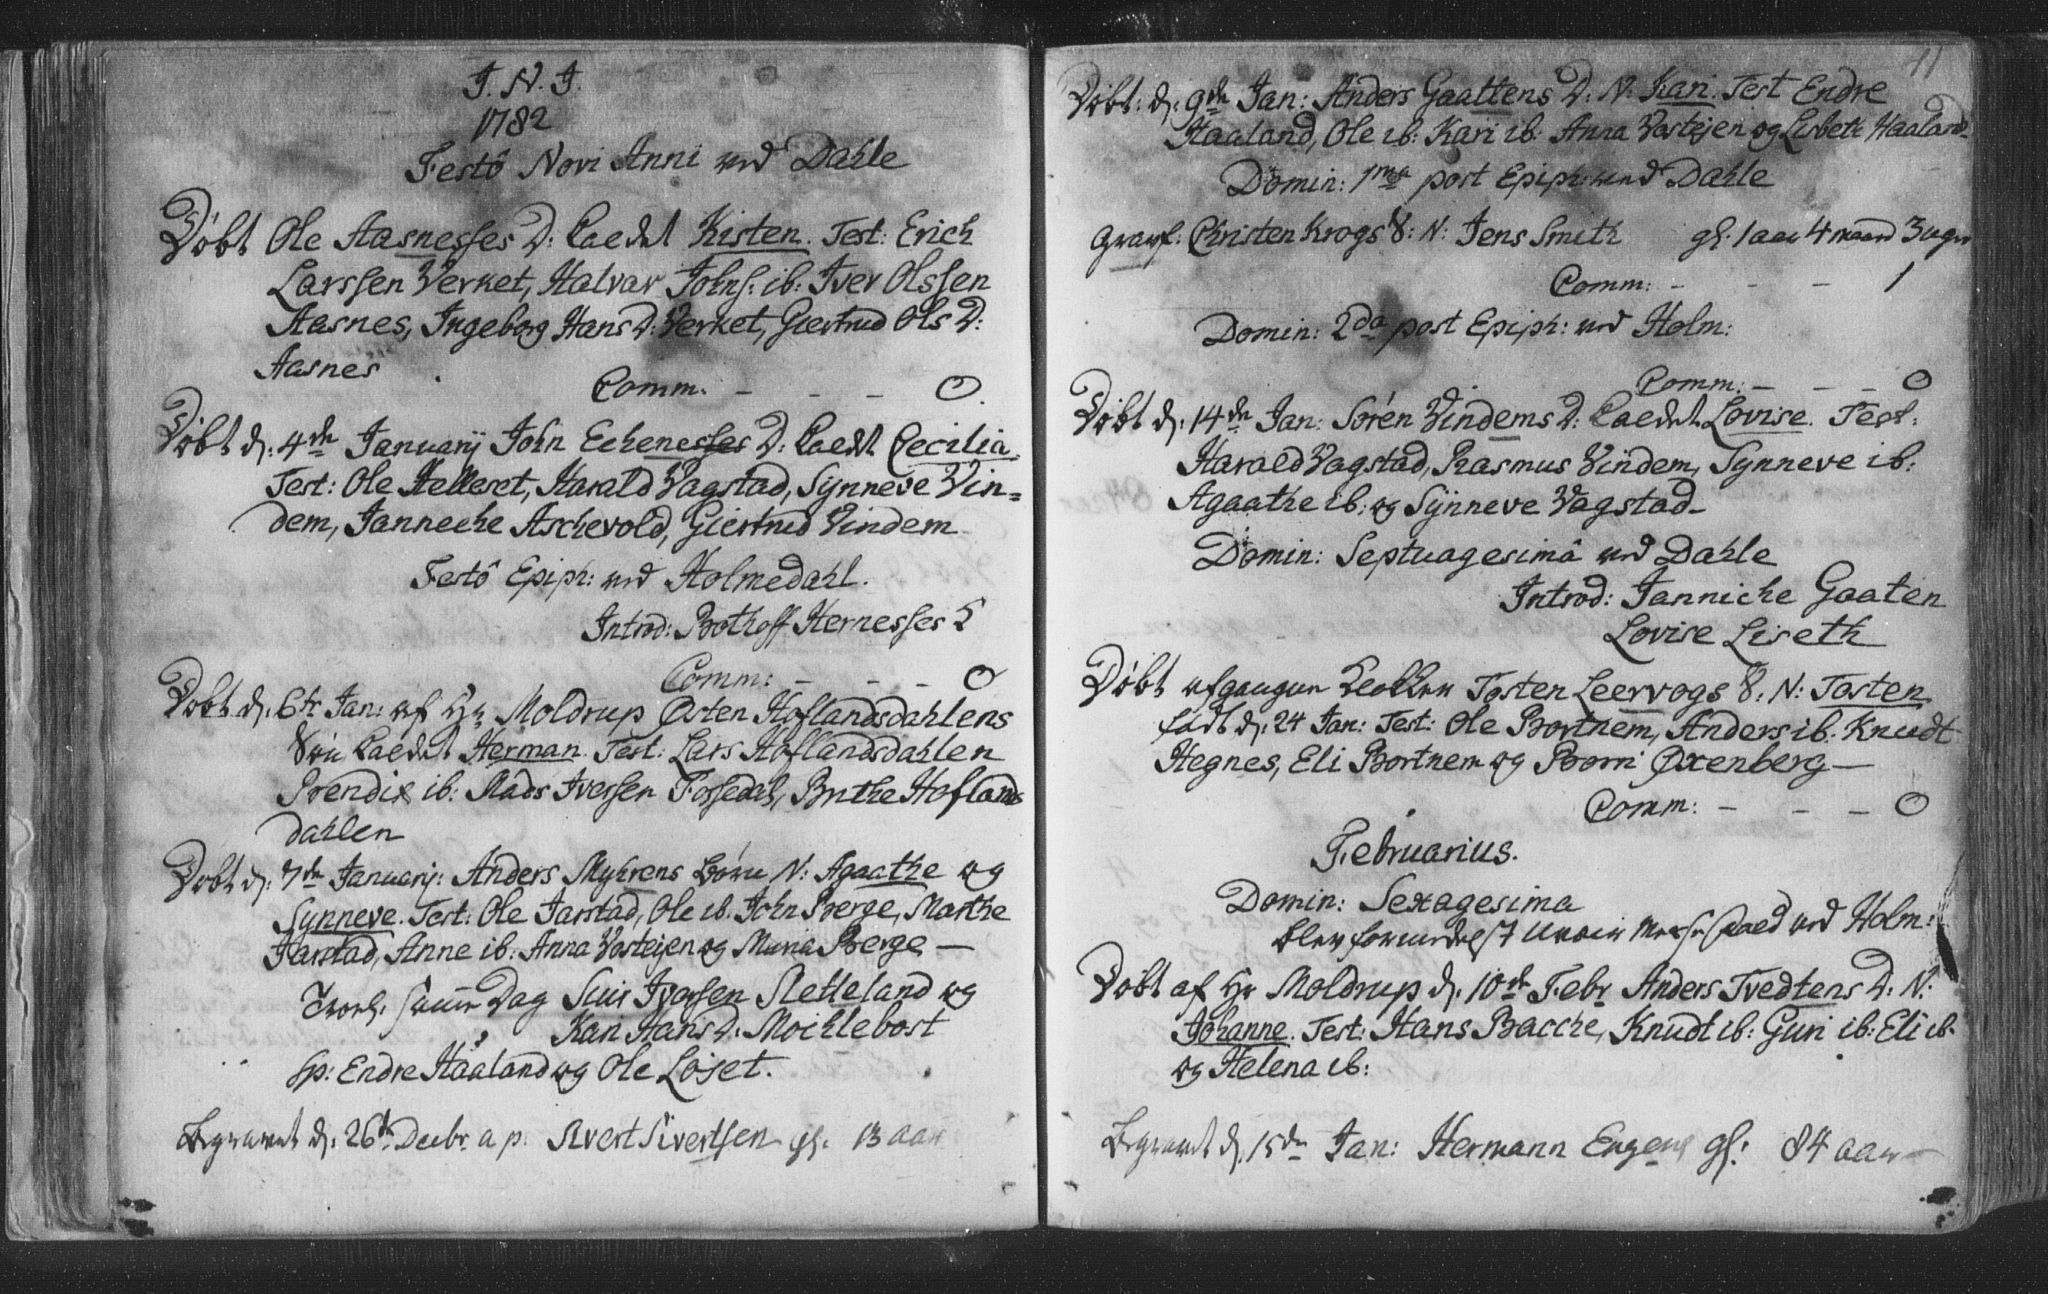 J. N. J.
1782
Festô Novi Anni ved Dahle
Døbt Ole Aasnesses D: kaedet Kisten. Test: Erich
Larssen Verket, Halvar Johns: ib: Iver Olssen
Aasnes, Ingeborg Hans D: Verket, Giertrud Ols D:
Aasnes
Comm: - - - 0.
Døbt d: 4de Januarij John Echenesses D: kaedt Cecilia.
Test: Ole Helleset, Harald Vagstad, Synneve Vin=
dem, Janneche Aschevold, Giertrud Vindem
Festô Epiph: ved Holmedahl.
Introd: Bothoff Hernesses
Comm: - - - 0
Døbt d: 6te Jan: af Hr Moldrup Østen Hoflandsdahlens
Søn kaedet Herman. Test: Lars Hoflandsdahlen
Bendix ib: Mads Iversen Fossedal, Brithe Hoflands
dahlen
Døbt d: 7de Januarij: Anders Myhrens børn N: Agaathe og
Synneve. Test: Ole Jarstad, Ole ib. John Berge, Marthe
Jarstad, Anne ib: Anna Vosteijen og Maria Berge —
Trol: samme Dag Siur Iversen Sletteland og
Kari Hans D: Mochlebost
Sp: Endre Haaland og Ole Løset.
Begravet d: 26de Decbr a p: Sivert Sivertsen gl. 13 aar
11
Døbt: d: 9de Jan: Anders Gaattens D: N: Kari. Test Endre
Haaland, Ole ib: Kari ib: Anna Vosteijen og Lisbeth Haaland
Domin: 1ma post Epiph: ved Dahle
Gravf: Christen Krogs S: N: Jens Smith gl. 1 aar 4 maand 3 uger
Comm: - - - 1
Domin: 2da post Epiph: ved Holm:
Comm: - - - 0
Døbt d: 14de Jan: Søren Vindems D: kaedet Lovise. Test:
Harald Vagstad, Rasmus Vindem, Synneve ib:
Agaathe ib: og Synneve Vagstad
Domin: Septuagesimâ ved Dahle
Introd: Janniche Gaaten
Lovise Liseth
Døbt Tosten Leervogs S: N: Tosten
født d: 24 Jan: Test: Ole Bortnem, Anders ib. Knudt
Hegnes, Eli Bortnem og Borni Øxenberg —
Comm: - - - 0
Februarius.
Domin: Sexagesima
blev forrædelst ved Holm:
Døbt af Hr Moldrup d: 10de Febr Anders Tvedtens D: N:
Johanne. Test: Hans Bacche, Knudt ib: Guri ib: Eli ib.
og Helena ib:
Begravet d: 15de Jan: Hermann Engens gl: 84 aar